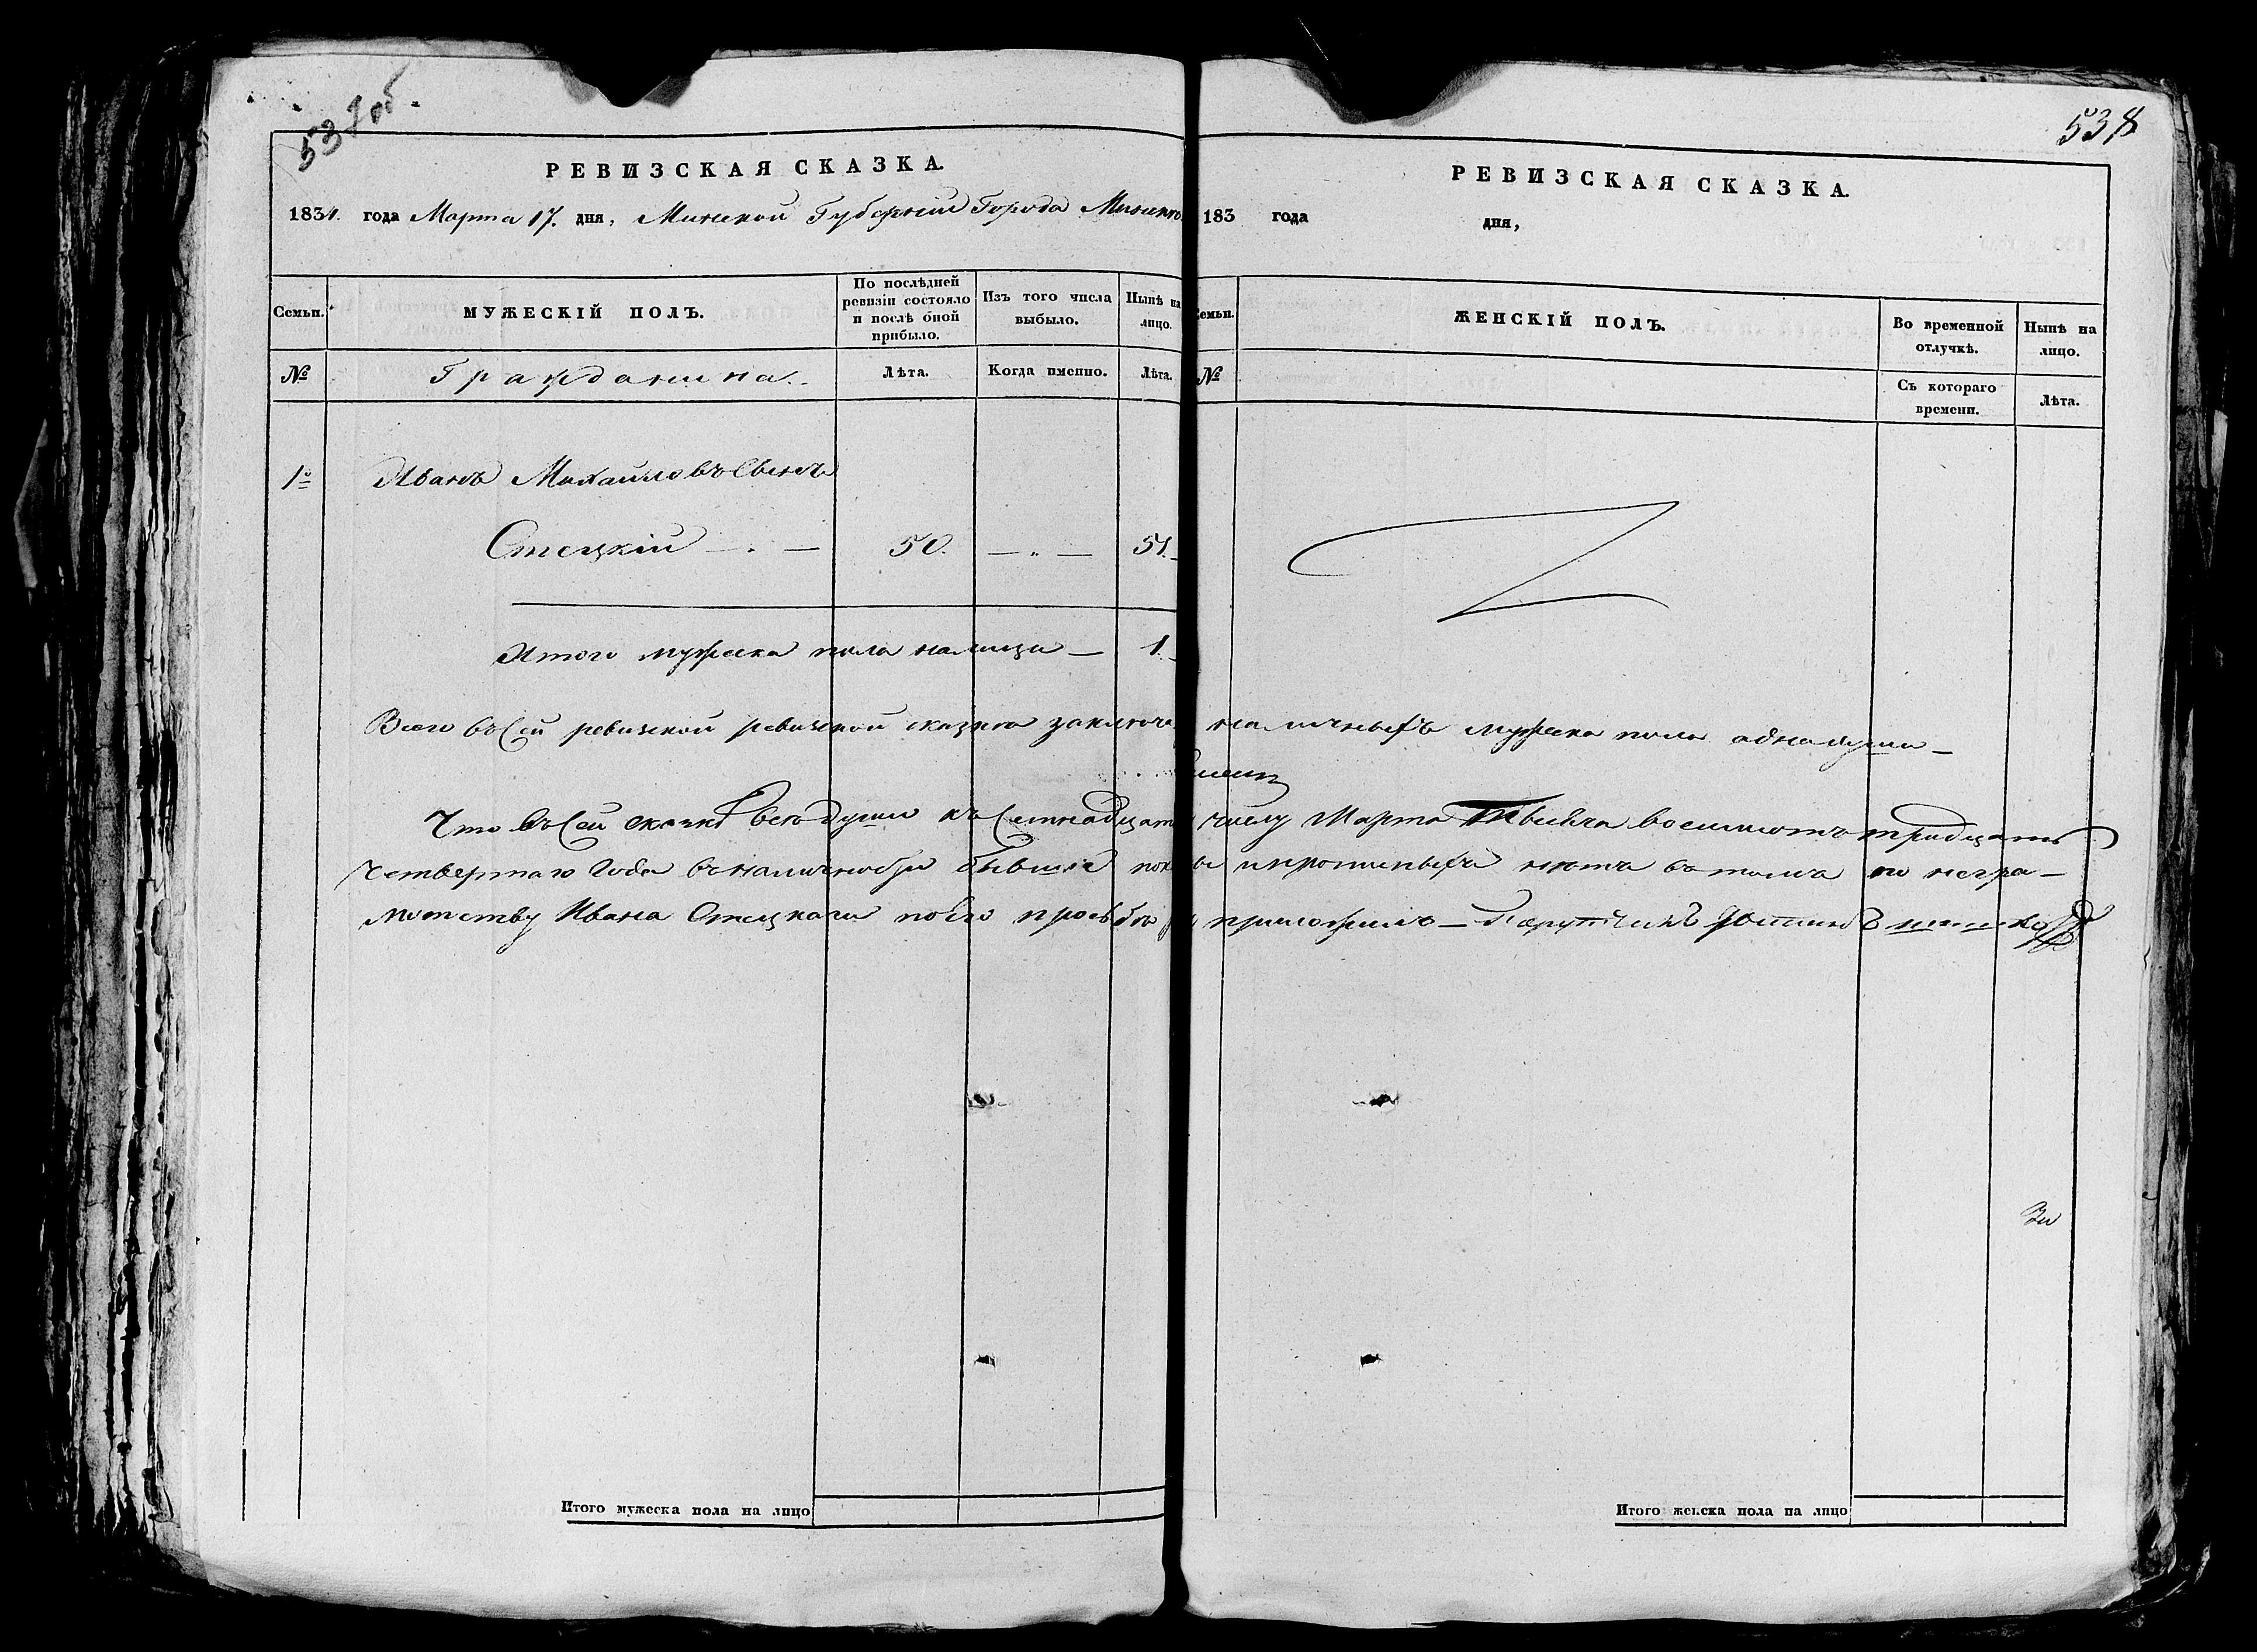 537 об.
РЕВИЗСКАЯ СКАЗКА.
1834. года Марта 17. дня, Минской Губерніи Города Минска
Семьи.
МУЖЕСКІЙ ПОЛЪ.
По послѣдней ревизіи состояло и послѣ оной прибыло.
Изъ того числа выбыло.
Нынѣ на лицо.
№
Гражданина.
Лѣта.
Когда именно.
Лѣта.
1
Иванъ Михайловъ Сынъ
Стецкій — . — 50. — „ — 51.
Итого мужеска пола налицо — 1.
Всего въ Сей ревизской ревизской сказки заключе
Что въ Сей сказки всѣ души къ Семнадцат
четвертаго Года въ наличности бывшіе пок
мотству Ивана Стецкаго по его прозьбѣ
Итого мужеска пола на лицо
538
РЕВИЗСКАЯ СКАЗКА.
183 года дня,
Семьи.
ЖЕНСКІЙ ПОЛЪ.
Во временной отлучкѣ.
Нынѣ на лицо.
№
Съ котораго времени.
Лѣта.
наличныхъ мужеска пола одна душа —
числу Марта Мѣсяца восемьсотъ тридцать
и прописныхъ нѣтъ въ томъ по негра-
приложилъ — Поручикъ
Итого женска пола на лицо